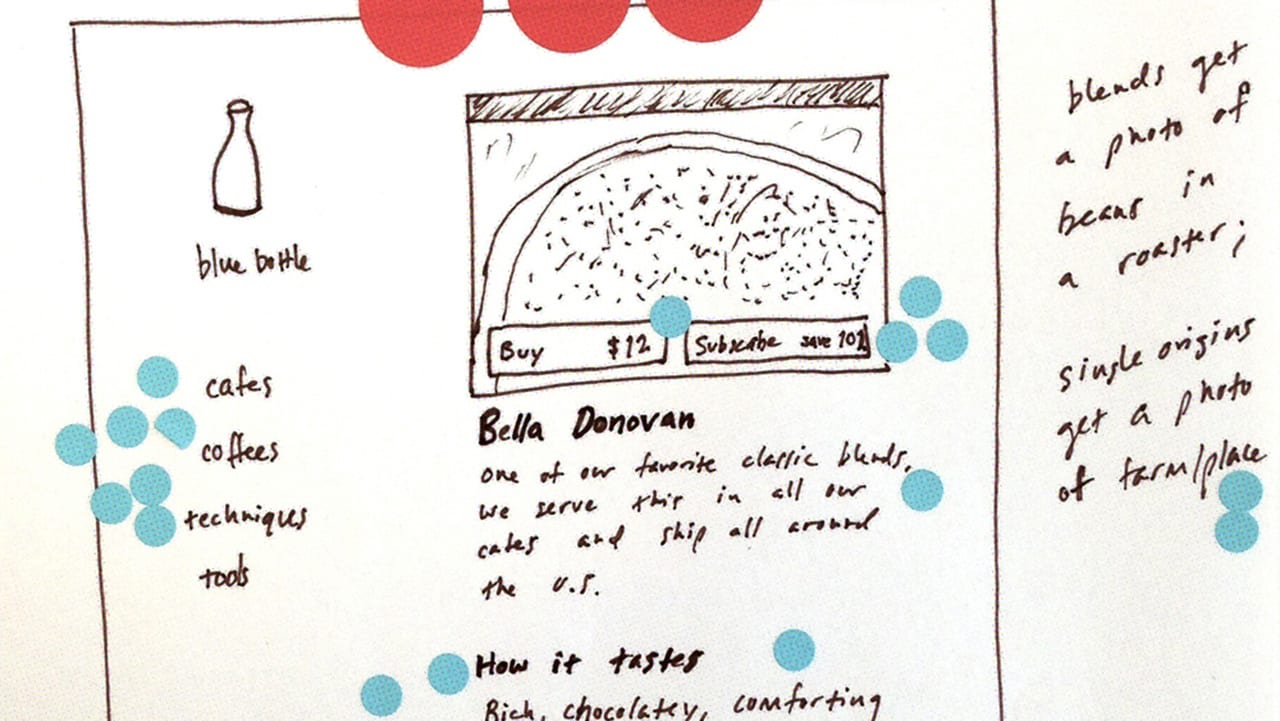 blue bottle
cafes
coffees
techniques
tools
Buy $12
Subscribe save 10%
Bella Donovan
one of our favorite classic blends.
we serve this in all our
cafes and ship all around
the U.S.
How it tastes
Rich, chocolatey, comforting
blends get
a photo of
beans in
a roaster;
single origins
get a photo
of farm/place